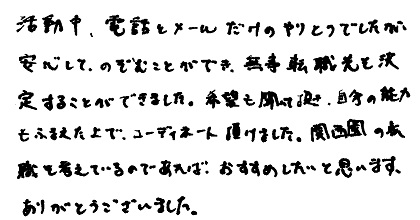 活動中、電話とメールだけのやりとりでしたが、
安心して、のぞむことができ、無事転職先を決
定することができました。希望も聞いて頂き、自分の能力
もふまえた上で、コーディネート頂けました。関西圏の転
職を考えているのであれば、おすすめしたいと思います。
ありがとうございました。